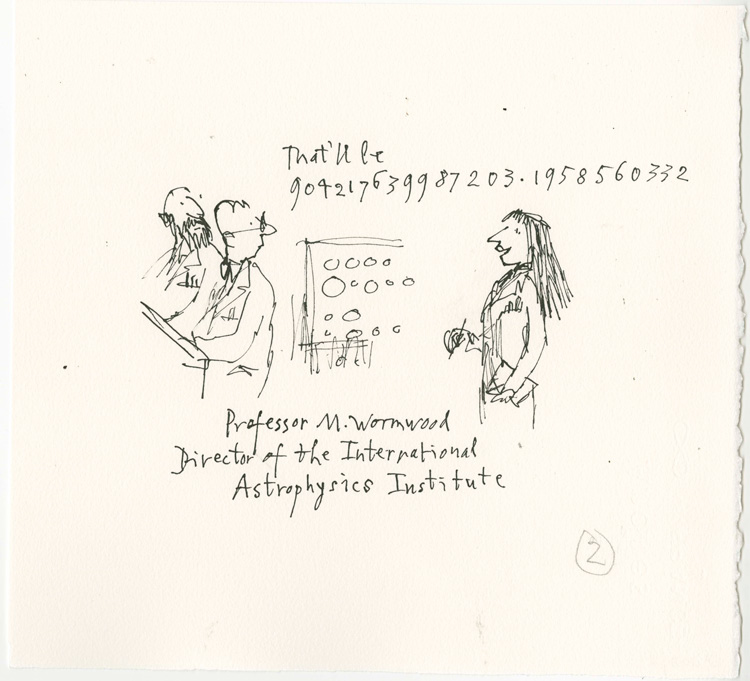 That'll be
904217639987203.1958560332
Professor M. Wormwood
Director of the International
Astrophysics Institute
2